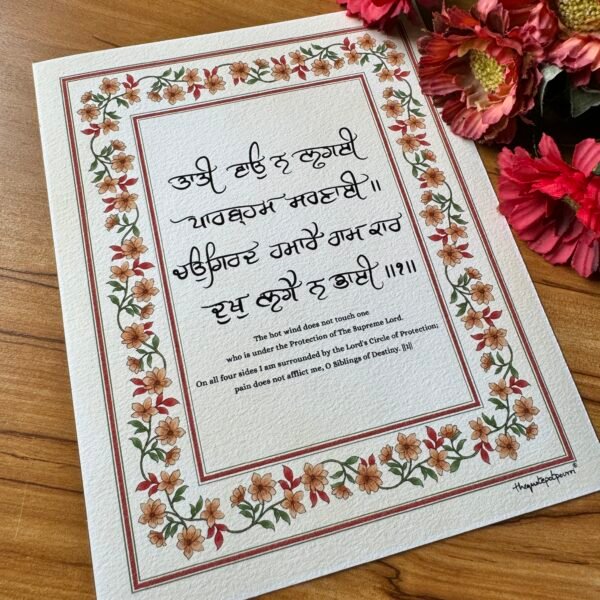 ਤਾਤੀ ਵਾਉ ਨ ਲਗਈ
ਪਾਰਬ੍ਰਹਮ ਸਰਣਾਈ ॥
ਚਉਗਿਰਦ ਹਮਾਰੈ ਰਾਮ ਕਾਰ
ਦੁਖੁ ਲਗੈ ਨ ਭਾਈ ॥੧॥
The hot wind does not touch one
who is under the Protection of The Supreme Lord.
On all four sides I am surrounded by the Lord's Circle of Protection;
pain does not afflict me, O Siblings of Destiny. ||1||